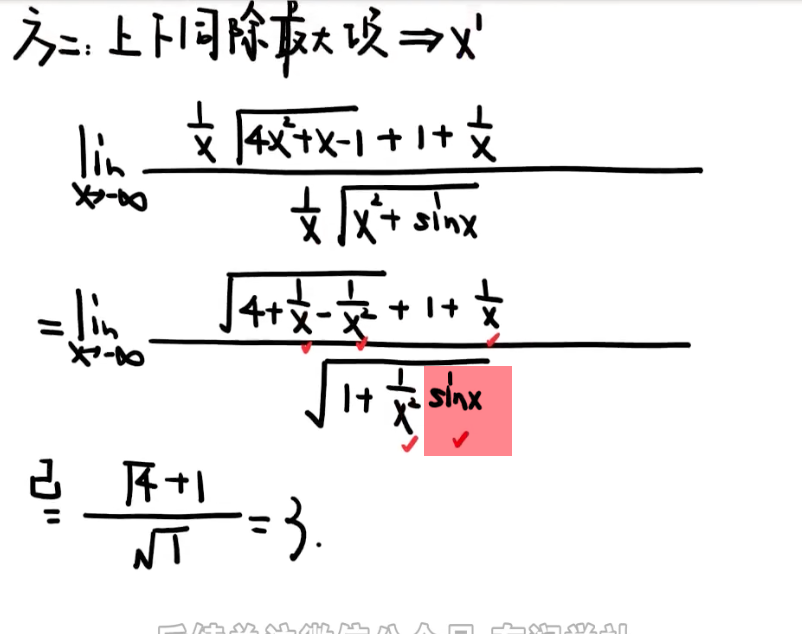 方二：上下同除最大项 ⇒ x¹
lim x→-∞ (1/x √(4x²+x-1) + 1 + 1/x) / (1/x √(x²+sinx))
= lim x→-∞ (√(4+1/x-1/x²) + 1 + 1/x) / √(1+1/x² sinx)
已 = (√4+1)/√1 = 3.